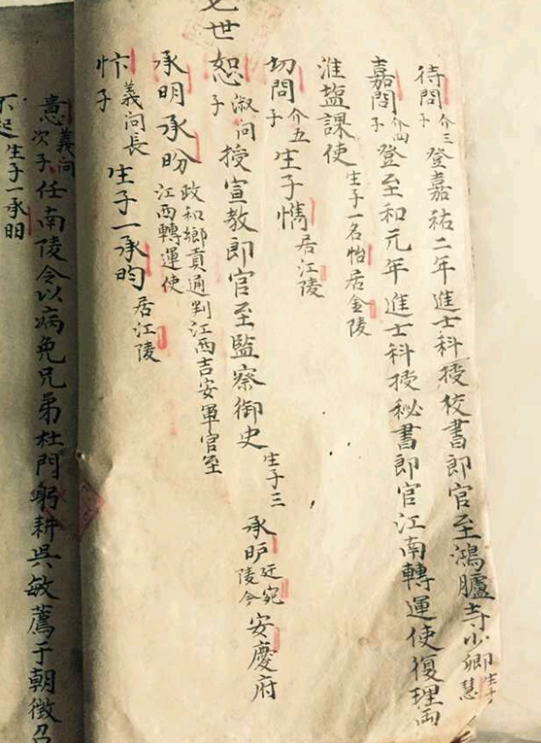 七世
待問介三子登嘉祐二年進士科授校書郎官至鴻臚寺少卿生子慧
嘉問介四子登至和元年進士科授秘書郎官江南轉運使復理両
淮塩課使生子一名怡居金陵
切問介五子生子㦗居江陵
恕淑问子授宣教郎官至監察御史生子三承昈廷宛陵今安慶府
承明承昐政和鄉貢通判江西吉安軍官至江西轉運使
忭義问長子生子一承昀居江陵
憙義问次子任南陵令以病免兄弟杜門躬耕吳敏薦于朝徴召
不起生子一承明